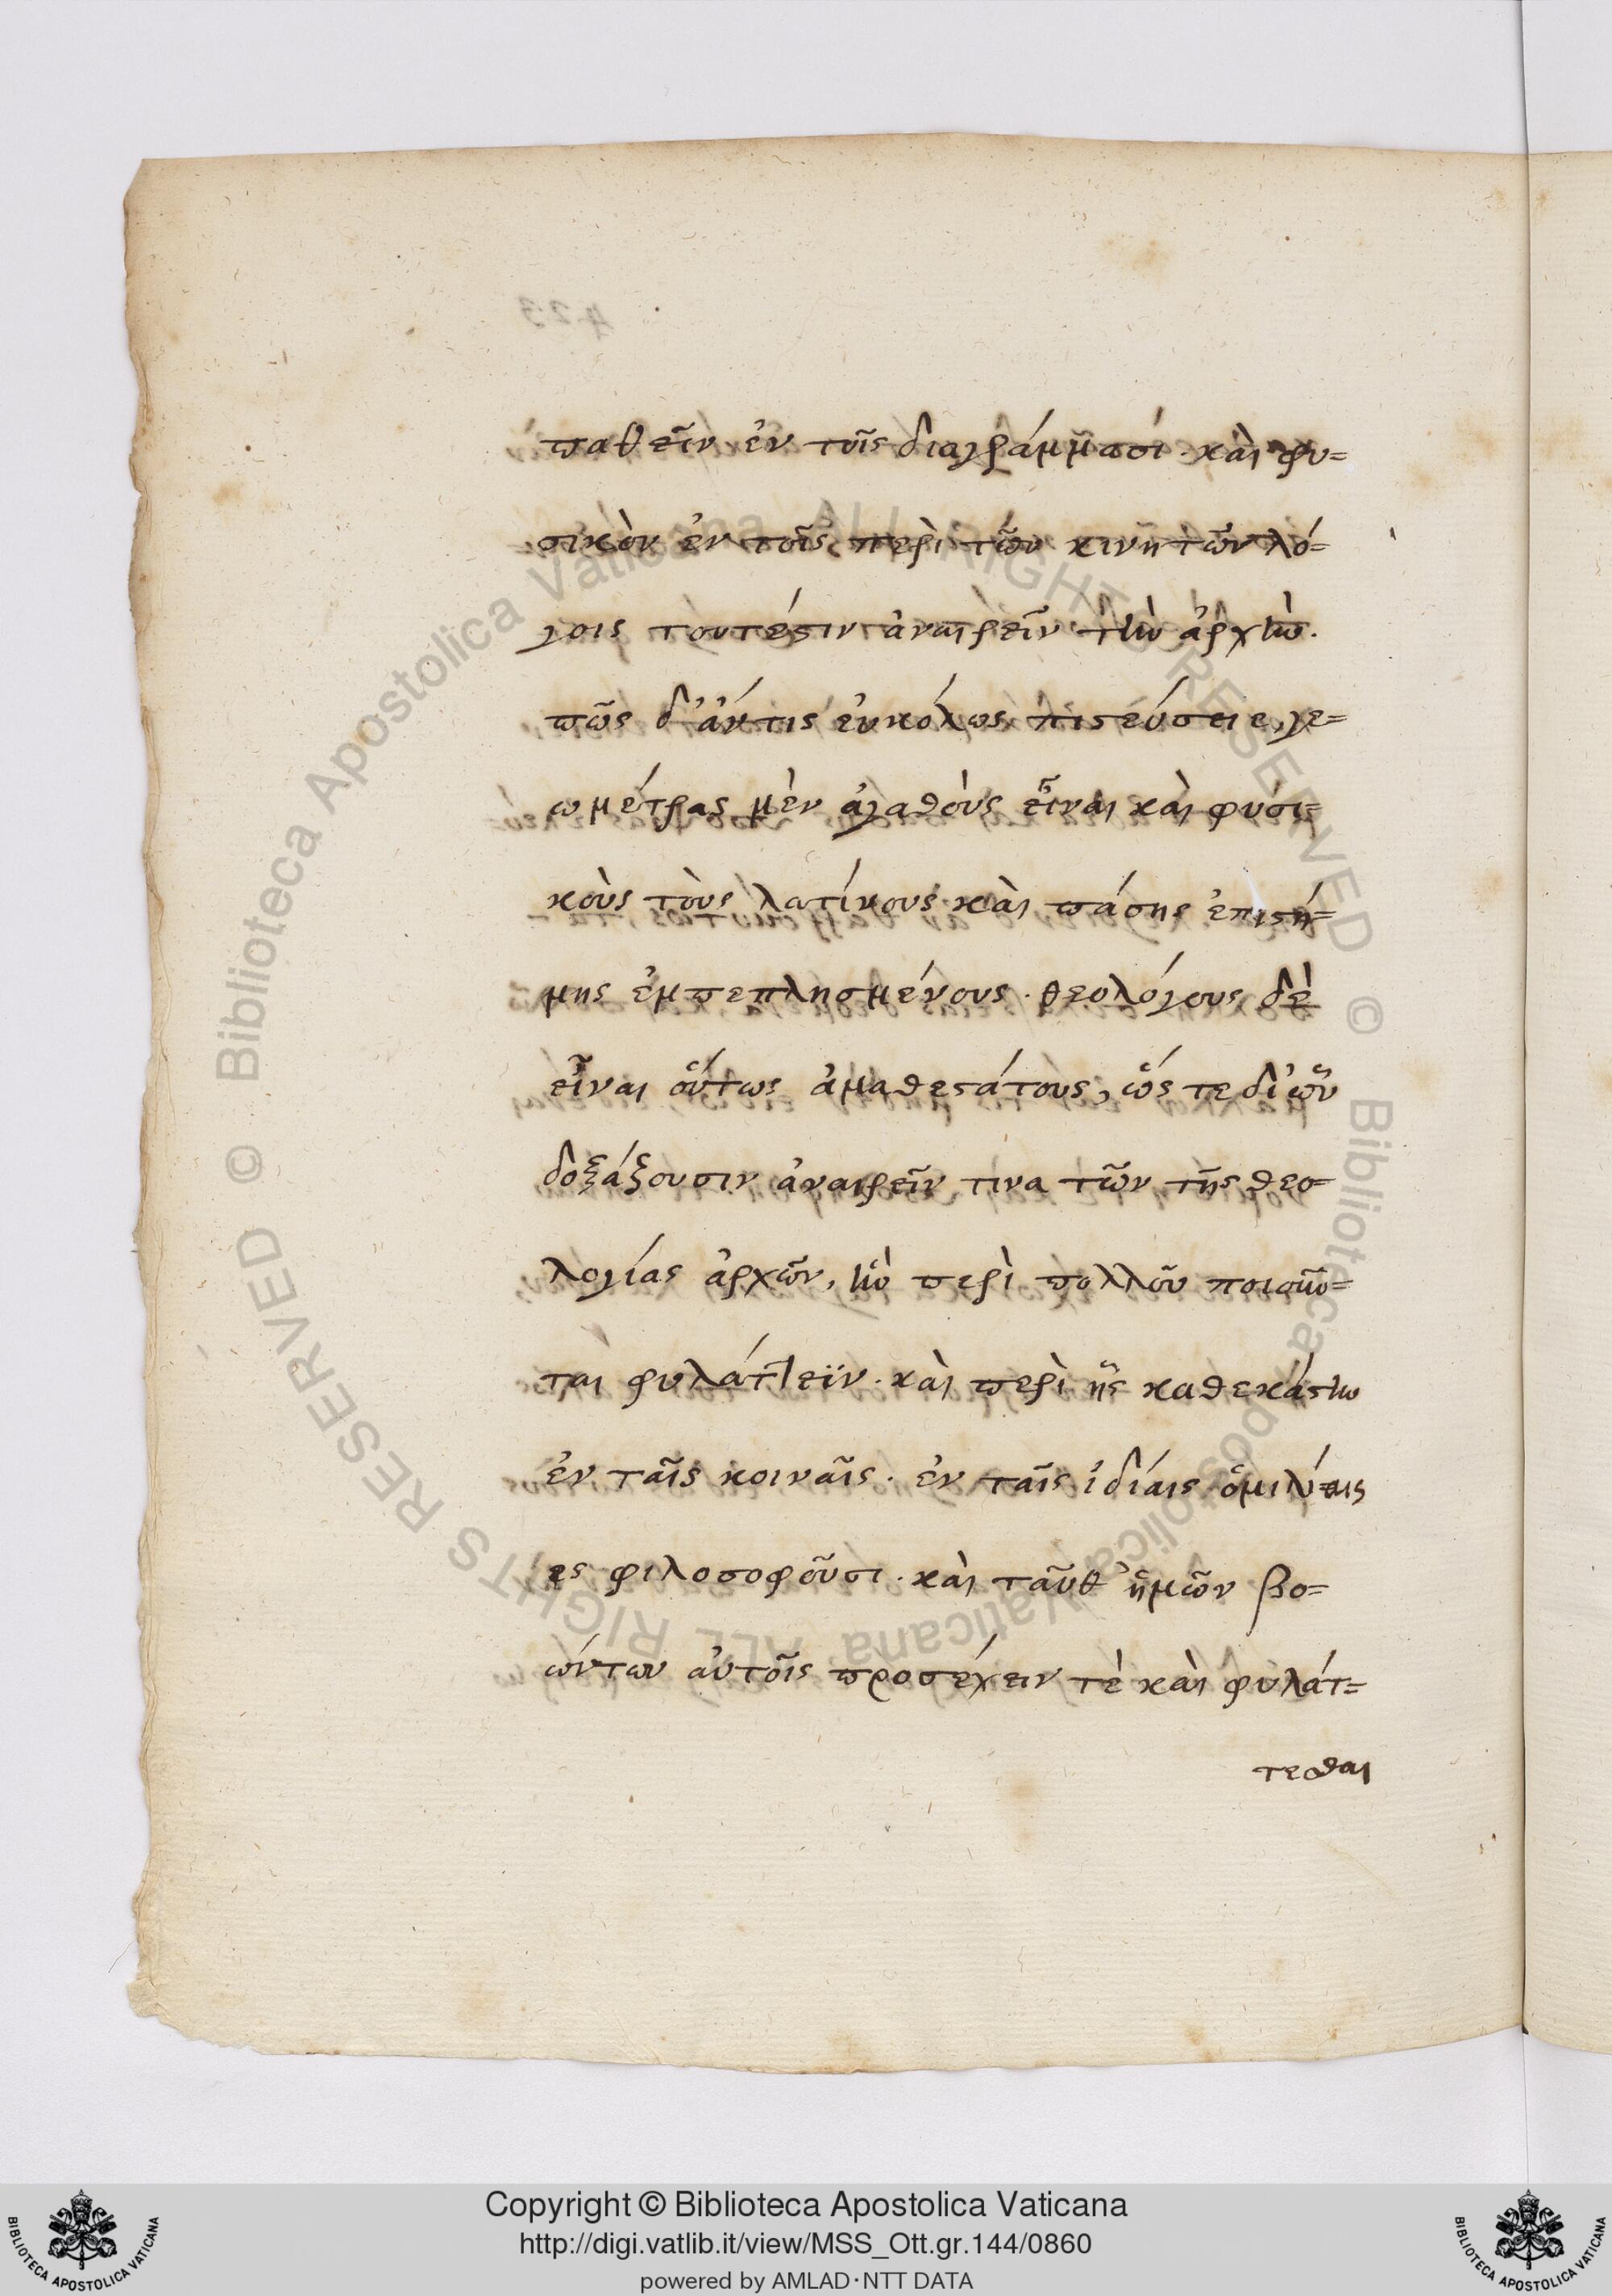 παθεῖν ἐν τοῖς διαγράμμασί· καὶ φυ=
σικὸν ἐν τοῖς περὶ τῶν κινητῶν λό=
γοις τουτέστιν ἀναιρεῖν τὴν ἀρχὴν.
πῶς δ' ἄν τις εὐκόλως πιστεύσειε, γε=
ωμέτρας μὲν ἀγαθοὺς εἶναι καὶ φυσι=
κοὺς τοὺς λατίνους καὶ πάσης ἐπιστή=
μης ἐμπεπλησμένους· θεολόγους δὲ
εἶναι οὕτως ἀμαθεστάτους, ὥς τε δι' ὧν
δοξάζουσιν ἀναιρεῖν τινα τῶν τῆς θεο=
λογίας ἀρχῶν, ἣν περὶ πολλοῦ ποιοῦν=
ται φυλάττειν· καὶ περὶ ἧς καθεκάστην
ἐν ταῖς κοιναῖς· ἐν ταῖς ἰδίαις ὁμιλίαις
ες φιλοσοφοῦσι· καὶ ταῦθ' ἡμῶν βο=
ώντων αὐτοῖς προσέχειν τὲ καὶ φυλάτ=
τεσθαι
423
© Biblioteca Apostolica Vaticana ALL RIGHTS RESERVED © Biblioteca Apostolica Vaticana, ALL RIGHTS RESERVED
Copyright © Biblioteca Apostolica Vaticana
http://digi.vatlib.it/view/MSS_Ott.gr.144/0860
powered by AMLAD·NTT DATA
BIBLIOTECA APOSTOLICA VATICANA
BIBLIOTECA APOSTOLICA VATICANA